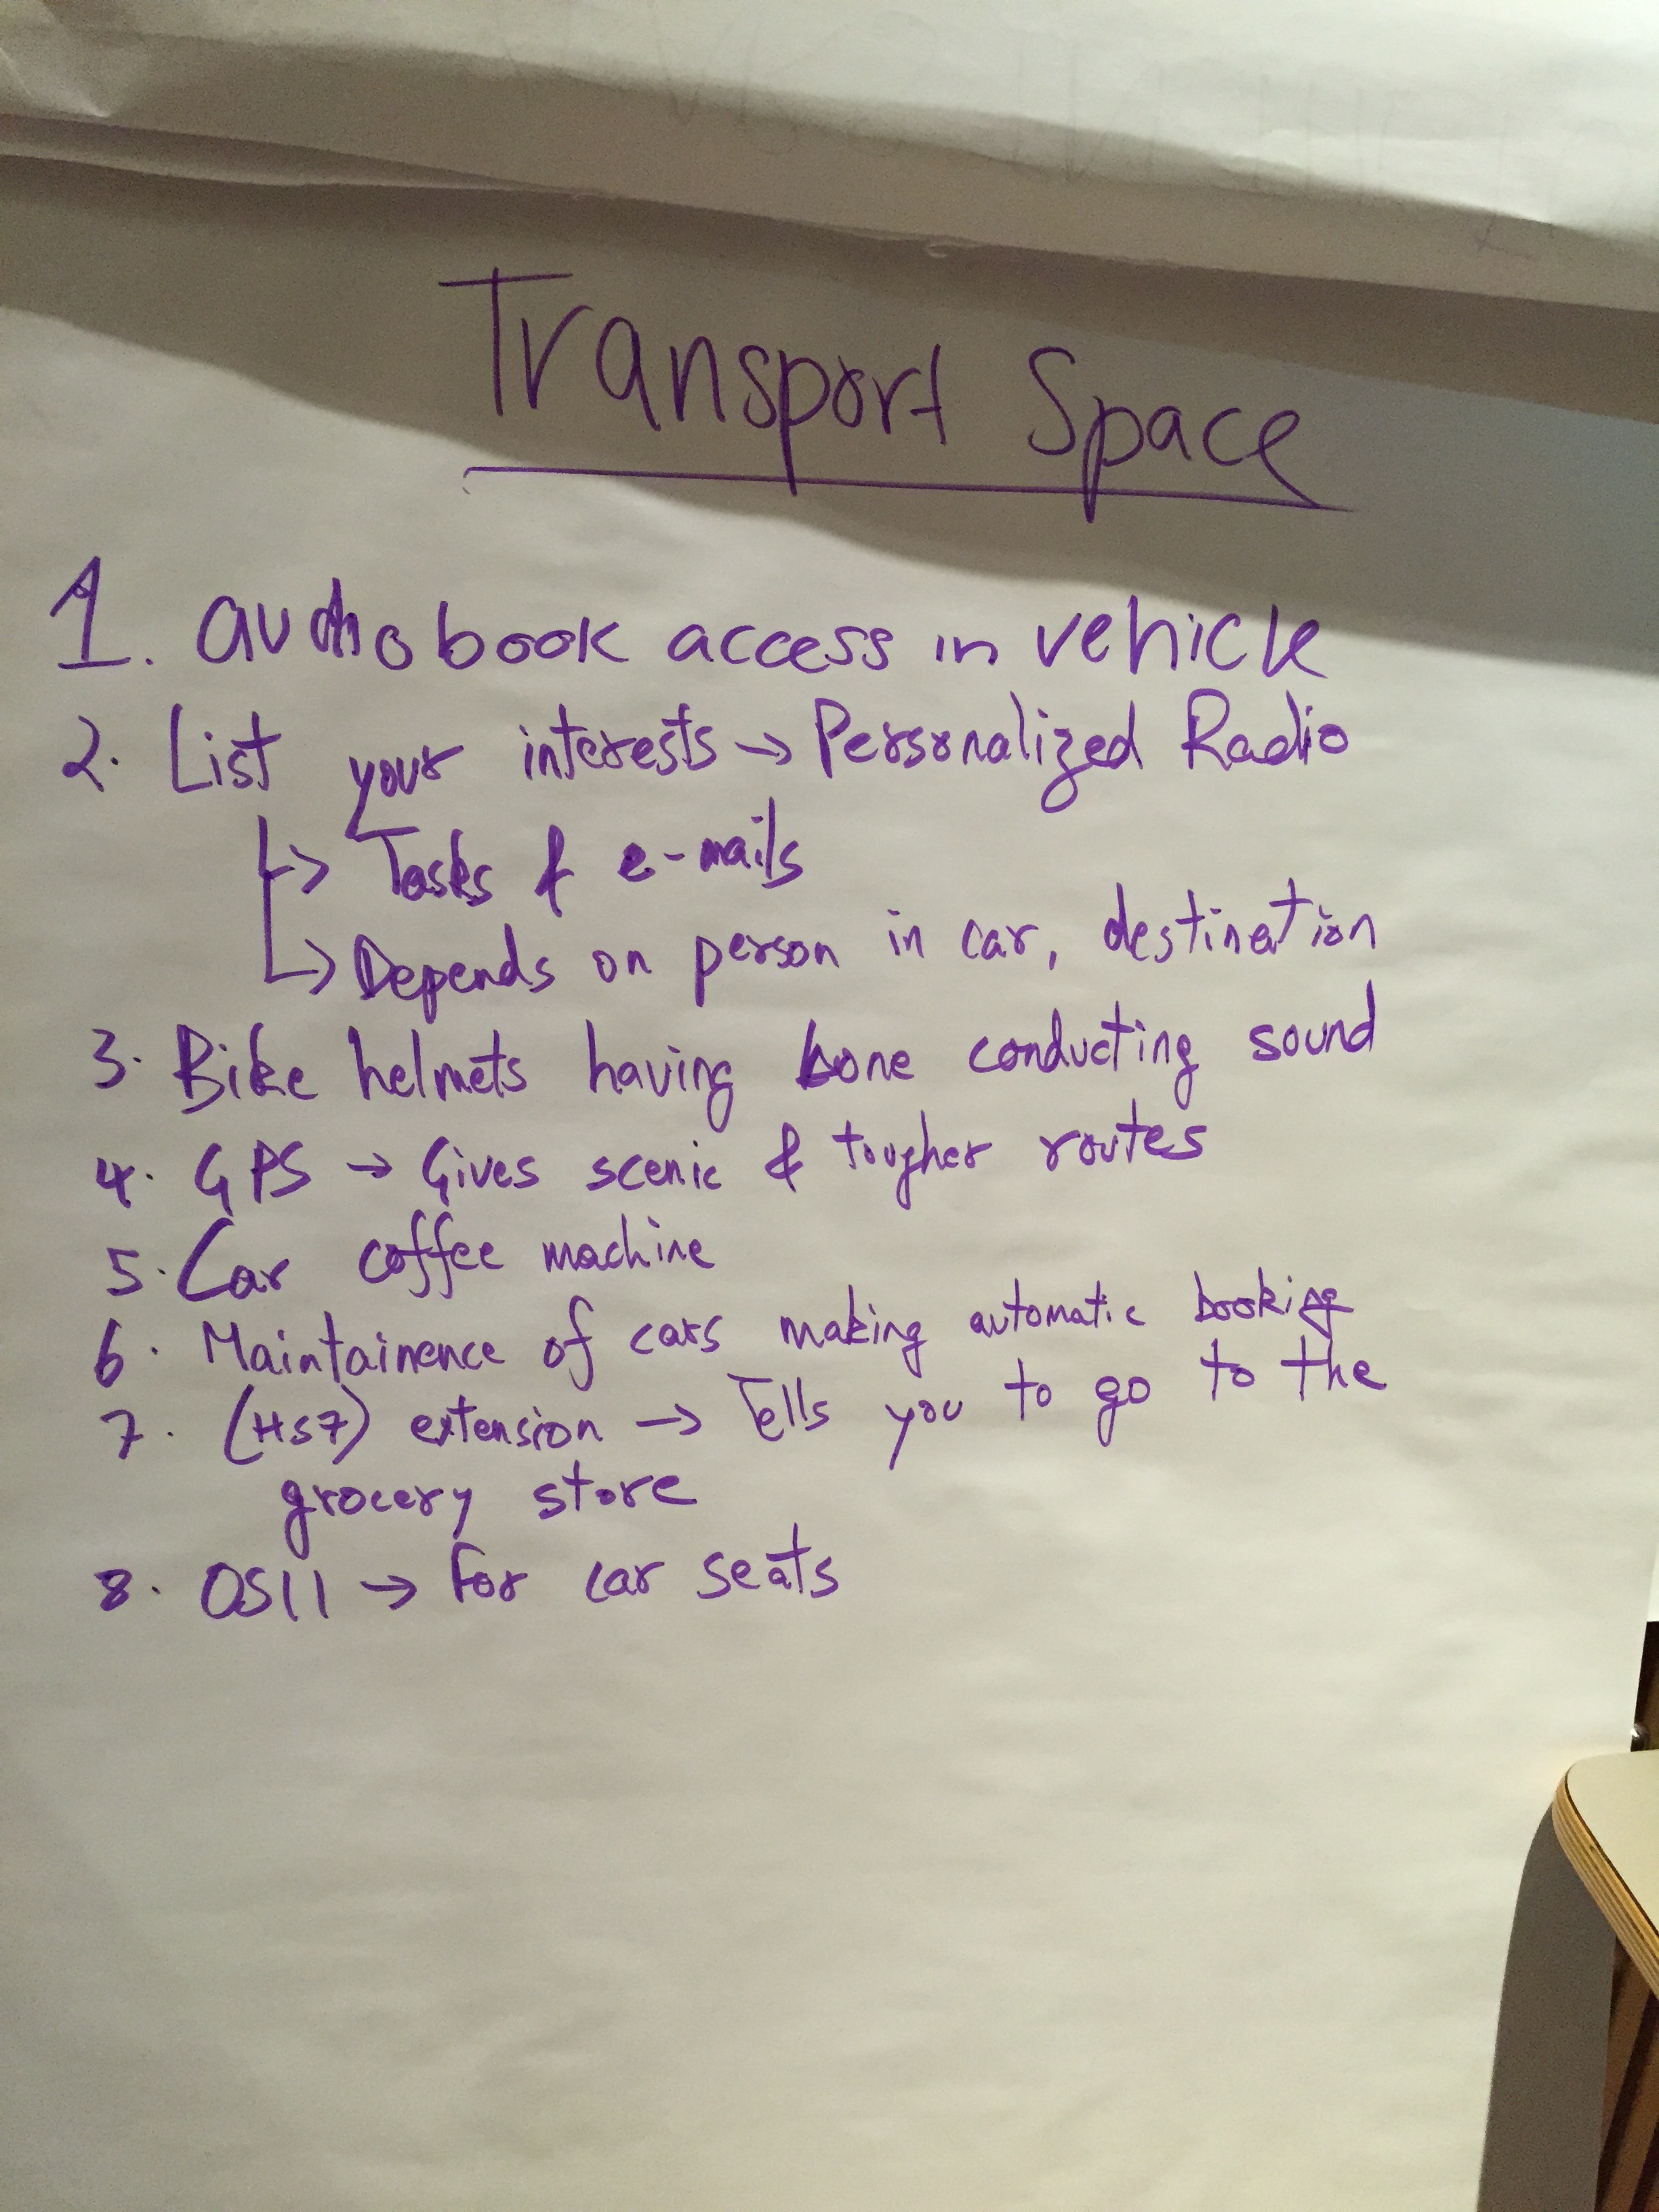 Transport Space
1. audiobook access in vehicle
2. List your interests → Personalized Radio
↳ Tasks & e-mails
↳ Depends on person in car, destination
3. Bike helmets having bone conducting sound
4. GPS → Gives scenic & tougher routes
5. Car coffee machine
6. Maintainence of cars making automatic booking
7. (HS7) extension → Tells you to go to the
grocery store
8. OS11 → for car seats